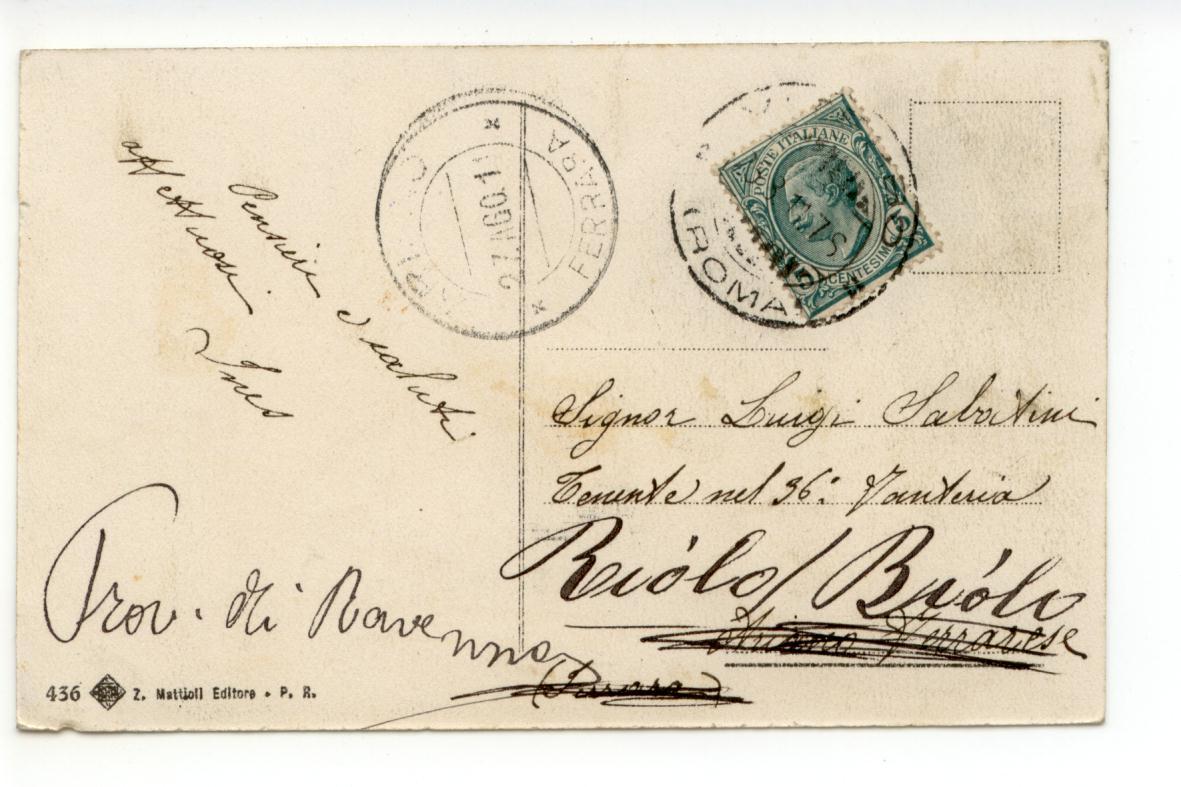 Pensieri e saluti
affettuosi
Ines
Signor Luigi Sabatini
Tenente nel 36º Fanteria
Riólo / Brióli
Ariano Ferrarese
(Ferrara)
Prov. di Ravenna
436 Z. Mattioli Editore - P. R.
27.AGO.1
FERRARA
(ROMA)
POSTE ITALIANE
CENTESIMI
5